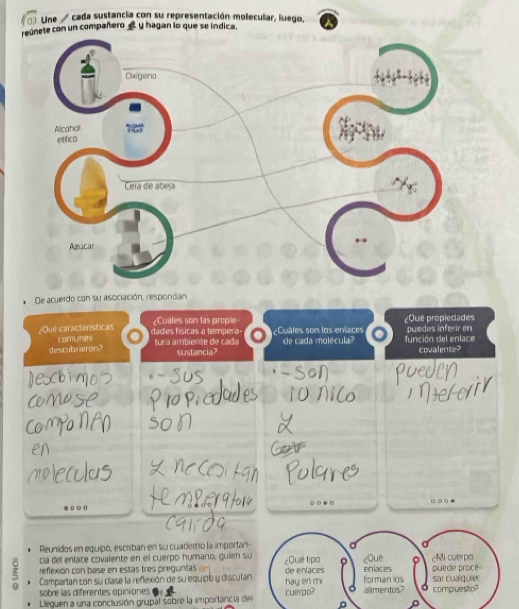 Une cada sustancia con su representación molecular, luego,
reúnete con un compañero y hagan lo que se indica.
Oxígeno
Alcohol
etílico
Cera de abeja
Azúcar
De acuerdo con su asociación, respondan
¿Qué características
comunes
descubrieron?
¿Cuáles son las propie-
dades físicas a tempera-
tura ambiente de cada
sustancia?
¿Cuáles son los enlaces
de cada molécula?
¿Qué propiedades
puedes inferir en
función del enlace
covalente?
Descbimos
como se
componen
en
moleculas
- sus
Propiedades
son
y necesitan
temperatura
- son
ionico
y
Polares
pueden
Reunidos en equipo, escriban en su cuaderno la importan-
cia del enlace covalente en el cuerpo humano, guíen su
reflexión con base en estas tres preguntas
Compartan con su clase la reflexión de su equipo y discutan
sobre las diferentes opiniones
Lleguen a una conclusión grupal sobre la importancia del
¿Qué tipo
de enlaces
hay en mi
cuerpo?
¿Qué
enlaces
forman los
alimentos?
¿Mi cuerpo
puede proce-
sar cualquier
compuesto?
© UNOi